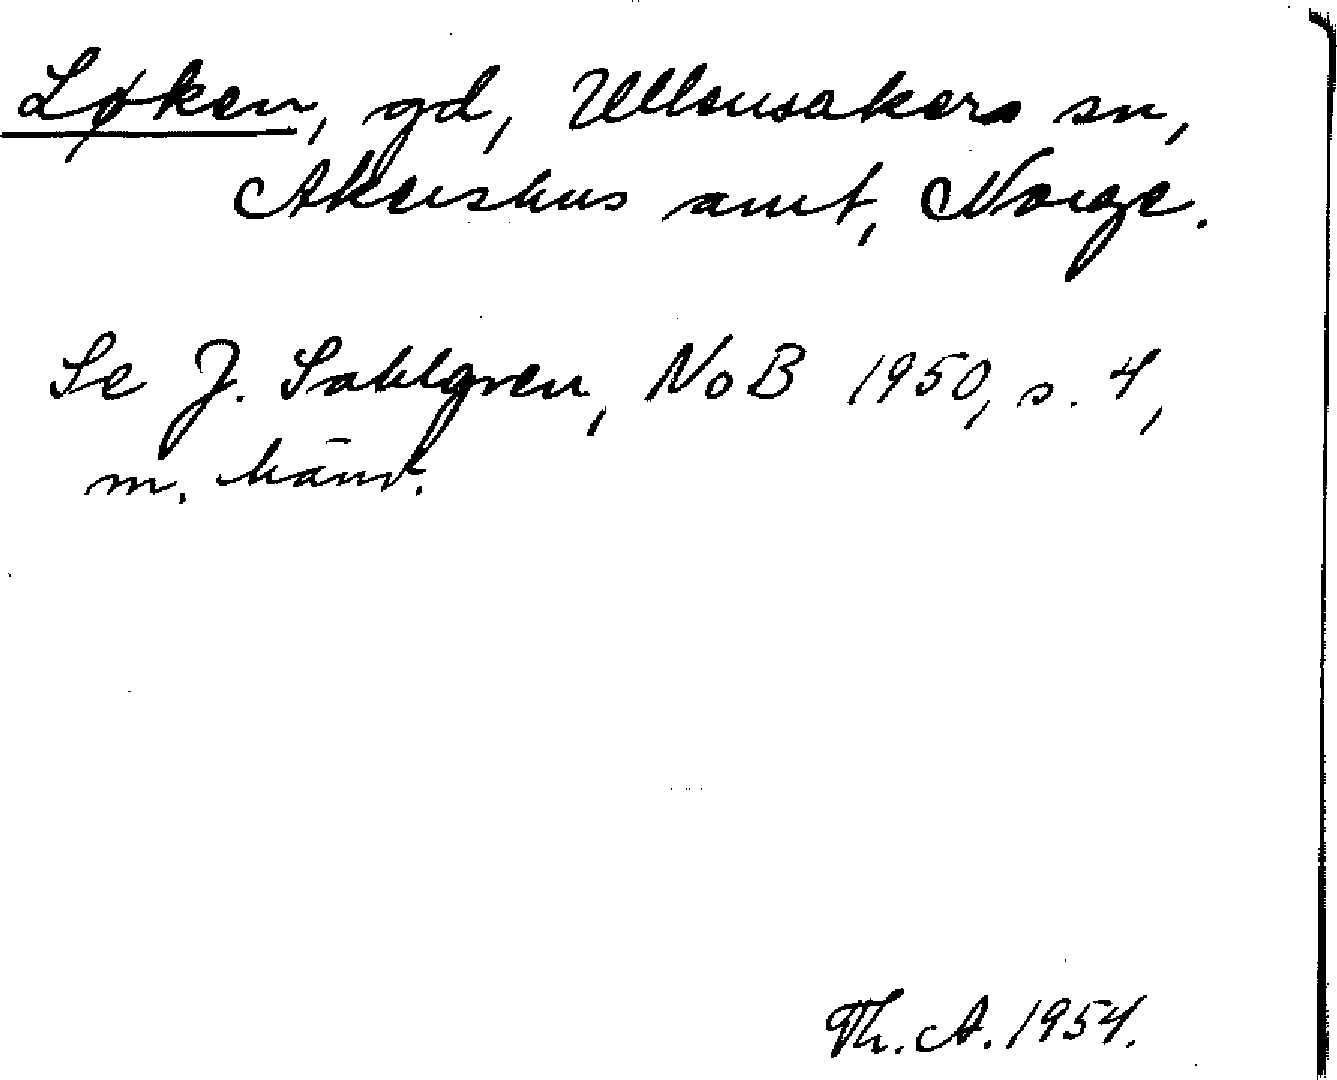 Løken, gd, Ullensakers sn,
Akershus amt, Norge.
Se J. Sahlgren, NoB 1950, s. 4,
m. hänv.
Th. A. 1954.